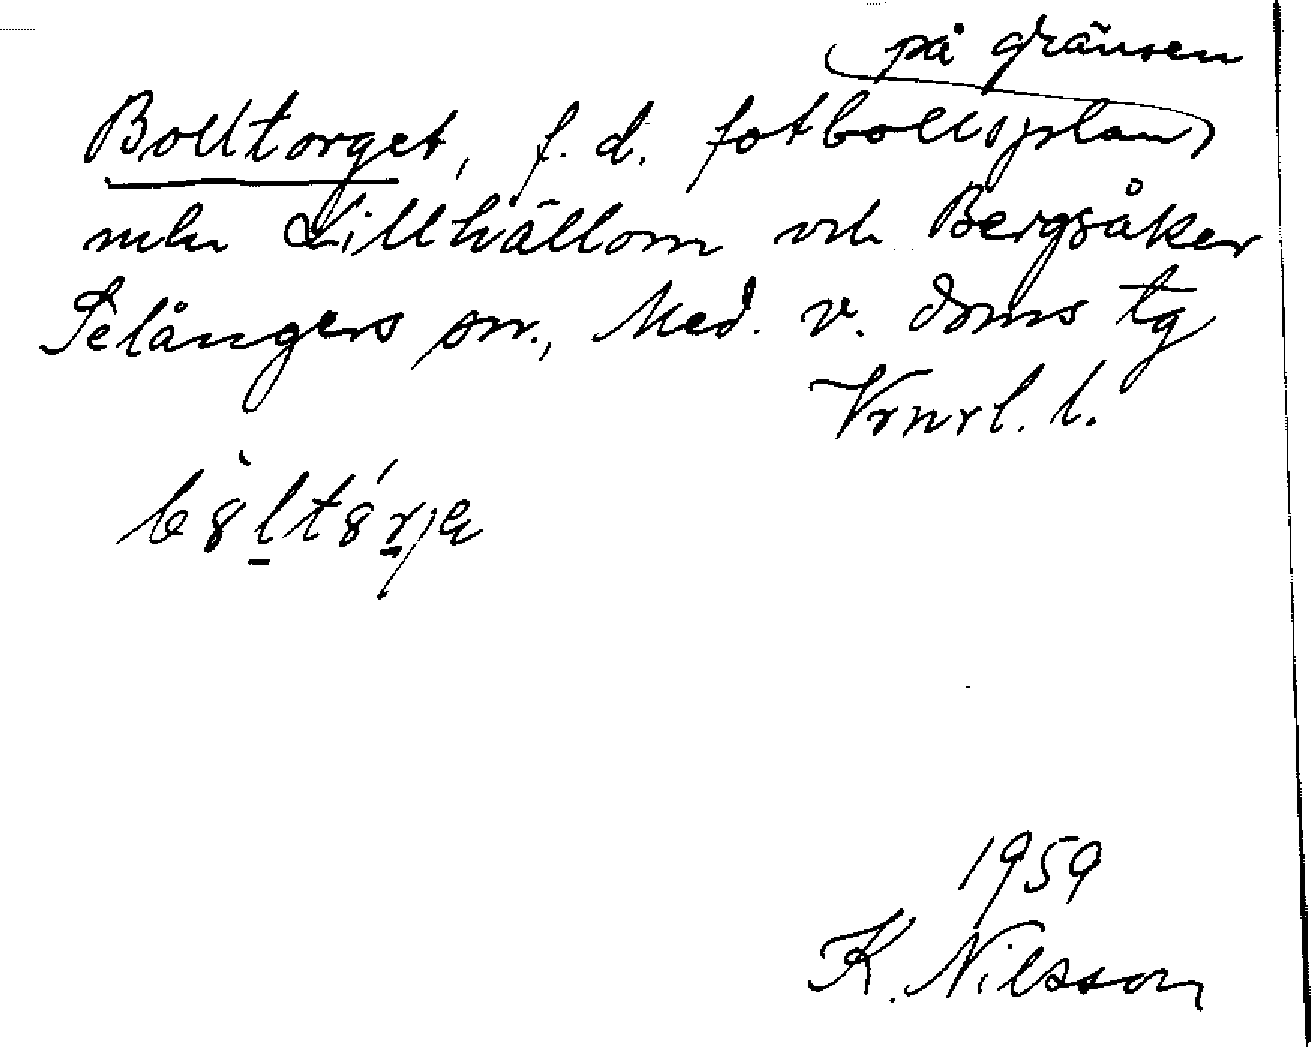 på gränsen
Bolltorget, f. d. fotbollsplan
mln Lillhällom och Bergsåker
Selångers sn., Med. v. doms tg
Vrnrl. l.
1959
K. Nilsson